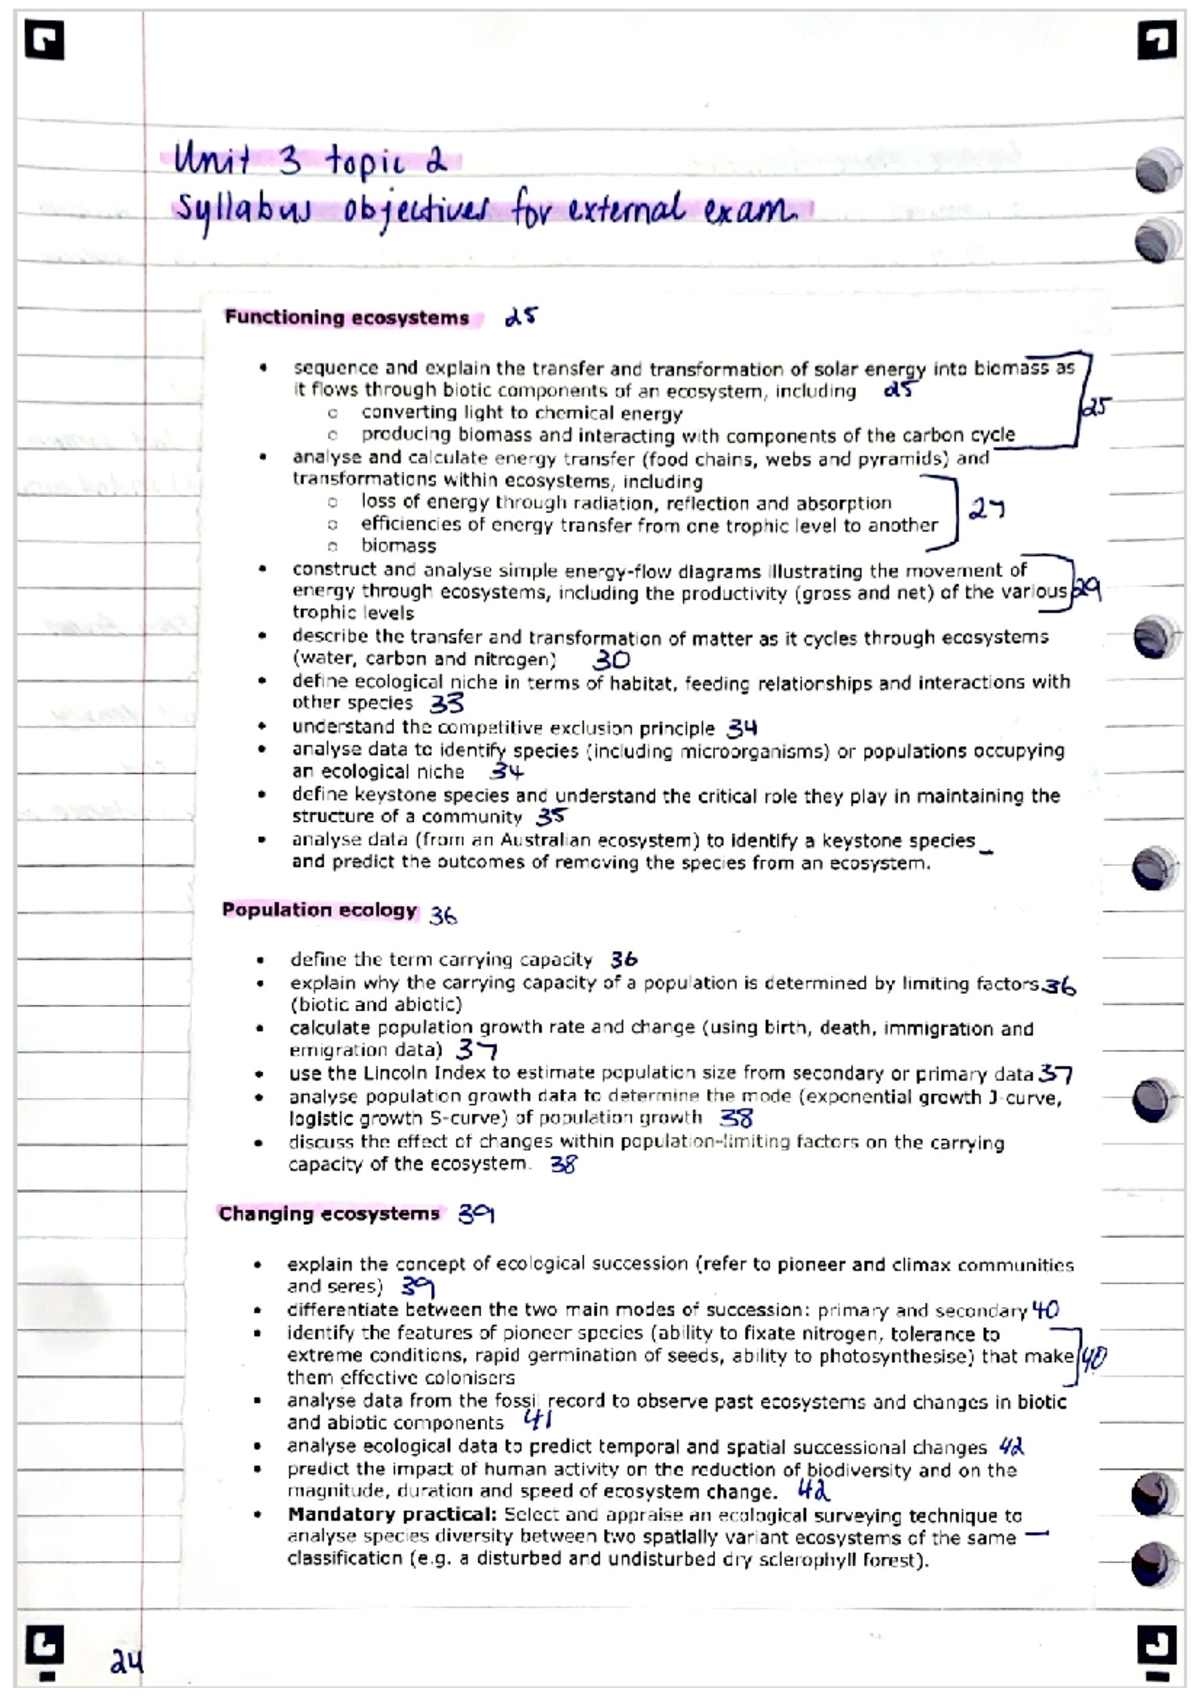 Unit 3 topic 2
Syllabus objectives for external exam.
Functioning ecosystems 25
• sequence and explain the transfer and transformation of solar energy into biomass as
it flows through biotic components of an ecosystem, including 25
○ converting light to chemical energy 25
○ producing biomass and interacting with components of the carbon cycle
• analyse and calculate energy transfer (food chains, webs and pyramids) and
transformations within ecosystems, including
○ loss of energy through radiation, reflection and absorption 27
○ efficiencies of energy transfer from one trophic level to another
○ biomass
• construct and analyse simple energy-flow diagrams illustrating the movement of
energy through ecosystems, including the productivity (gross and net) of the various 29
trophic levels
• describe the transfer and transformation of matter as it cycles through ecosystems
(water, carbon and nitrogen) 30
• define ecological niche in terms of habitat, feeding relationships and interactions with
other species 33
• understand the competitive exclusion principle 34
• analyse data to identify species (including microorganisms) or populations occupying
an ecological niche 34
• define keystone species and understand the critical role they play in maintaining the
structure of a community 35
• analyse data (from an Australian ecosystem) to identify a keystone species –
and predict the outcomes of removing the species from an ecosystem.
Population ecology 36
• define the term carrying capacity 36
• explain why the carrying capacity of a population is determined by limiting factors 36
(biotic and abiotic)
• calculate population growth rate and change (using birth, death, immigration and
emigration data) 37
• use the Lincoln Index to estimate population size from secondary or primary data 37
• analyse population growth data to determine the mode (exponential growth J-curve,
logistic growth S-curve) of population growth 38
• discuss the effect of changes within population-limiting factors on the carrying
capacity of the ecosystem. 38
Changing ecosystems 39
• explain the concept of ecological succession (refer to pioneer and climax communities
and seres) 39
• differentiate between the two main modes of succession: primary and secondary 40
• identify the features of pioneer species (ability to fixate nitrogen, tolerance to
extreme conditions, rapid germination of seeds, ability to photosynthesise) that make 40
them effective colonisers
• analyse data from the fossil record to observe past ecosystems and changes in biotic
and abiotic components 41
• analyse ecological data to predict temporal and spatial successional changes 42
• predict the impact of human activity on the reduction of biodiversity and on the
magnitude, duration and speed of ecosystem change. 42
• Mandatory practical: Select and appraise an ecological surveying technique to
analyse species diversity between two spatially variant ecosystems of the same –
classification (e.g. a disturbed and undisturbed dry sclerophyll forest).
24